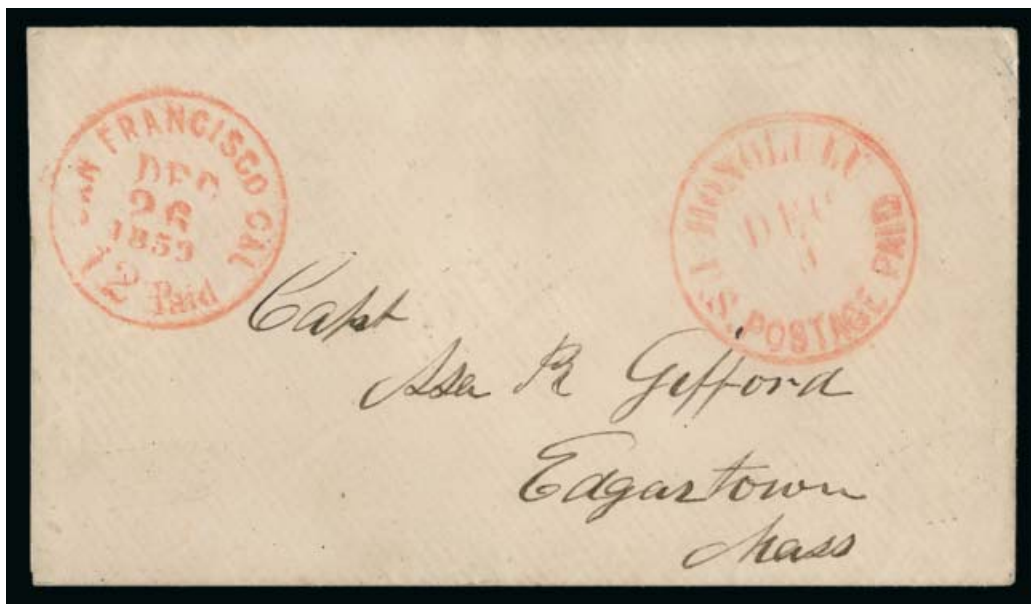 SAN FRANCISCO CAL
DEC
26
1859
12 Paid
HONOLULU
DEC
U.S. POSTAGE PAID
Capt
Asa R Gifford
Edgartown
Mass